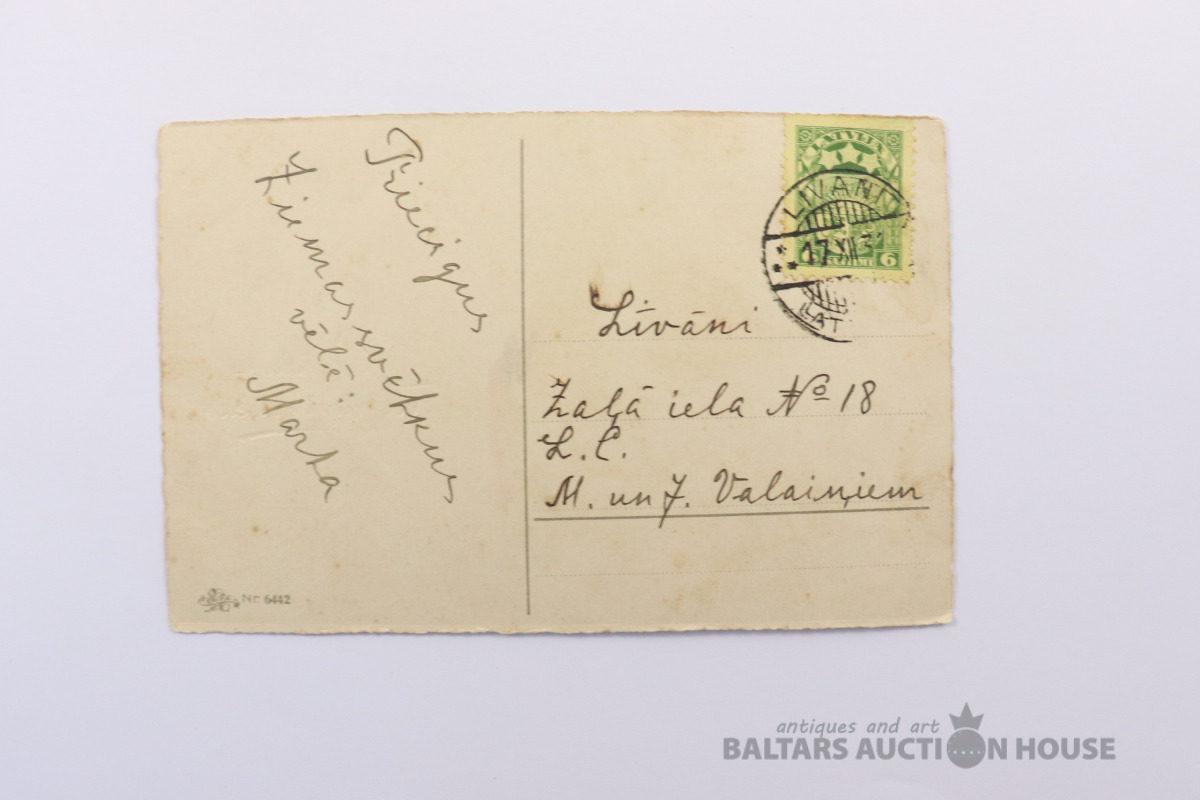 Priecigus
Ziemassvētkus
vēlē:
Marta
Nr. 6442
LATVIJA
LIVANI
17 XII 3
LAT
6
Līvāni
Zaļā iela № 18
L. C.
M. un J. Valaiņiem
antiques and art
BALTARS AUCTION HOUSE